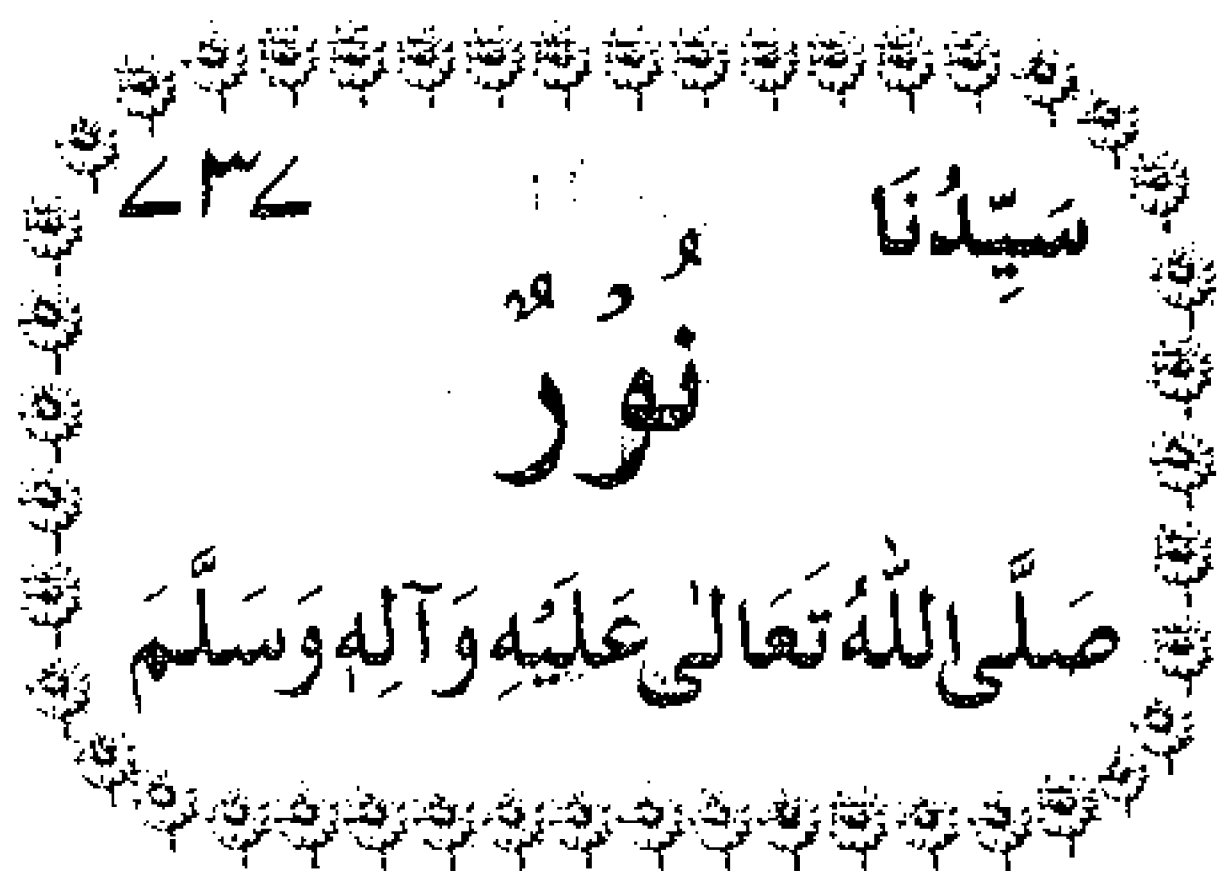 سَيِّدُنَا ۷۳۷
نُوْرٌ
صَلَّى اللّٰهُ تَعَالٰى عَلَيْهِ وَآلِهٖ وَسَلَّمَ